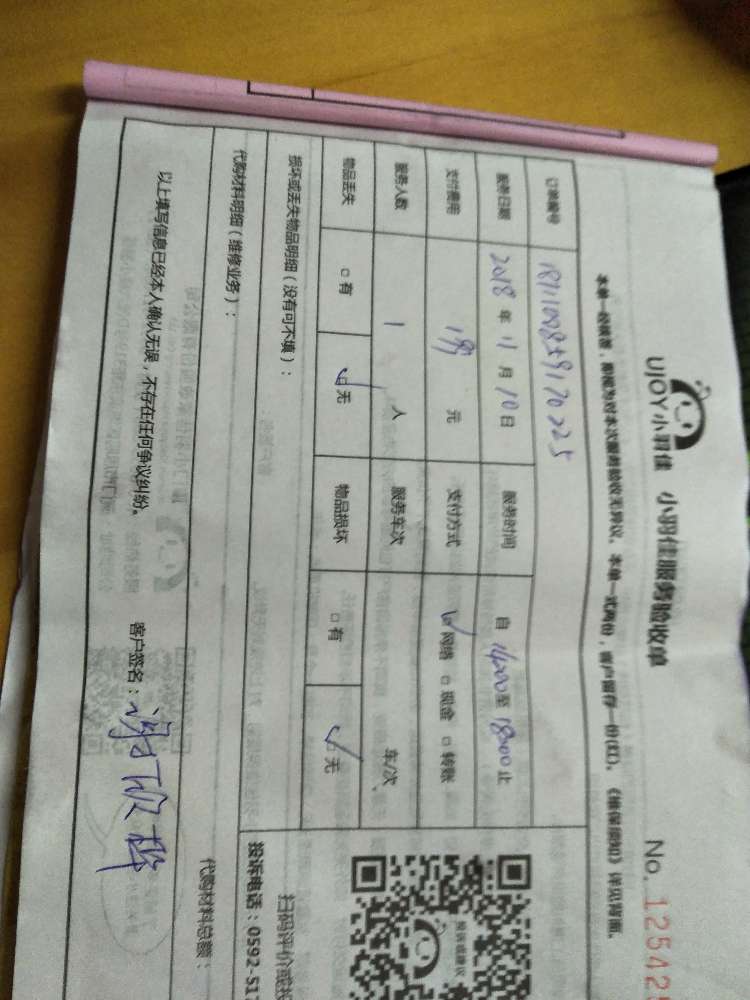 UJOY小羽佳 小羽佳服务验收单 No. 12542
本单一经核签，即视为对本次服务验收无异议。本单一式两份，客户留存一份(红)。《维保须知》详见背面。
订单编号 1811100859170225
服务日期 2018 年 11 月 10 日 服务时间 自 14:00 至 18:00 止
支付费用 元 支付方式 网络 现金 转账
服务人数 1 人 服务车次 车/次
物品丢失 有 无 物品损坏 有 无
损坏或丢失物品明细（没有可不填）：
代购材料明细（维修业务）：
代购材料总额：
以上填写信息已经本人确认无误，不存在任何争议纠纷。 客户签名：
投诉或建议
扫码评价或投
投诉电话：0592-51